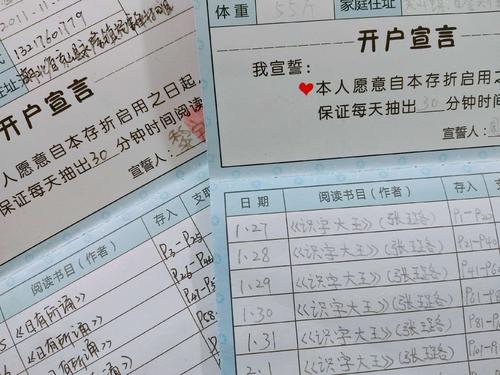 2011.11.
13217601779
址
开户宣言
人愿意自本存折启用之日起，
保证每天抽出30分钟时间阅读
宣誓人：
阅读书目（作者）
存入
支取
《日有所诵》
P3-P25
《日有所诵》
P26-P4
《日有所诵》
P47-P5
P58-
体重
55斤
家庭住址
开户宣言
我宣誓：
本人愿意自本存折启用之日
保证每天抽出30分钟时间
宣誓人：
日期
阅读书目（作者）
存入
1.27
《识字大王》（张班各）
P1-P20
1.28
《识字大王》（张班各）
P21-P40
1.29
《识字大王》（张班各）
P41-P
1.30
《识字大王》（张班各）
P61-P8
1.31
《识字大王》（张班各）
P81-P
2.1
《识字大王》（张班各）
P101-P